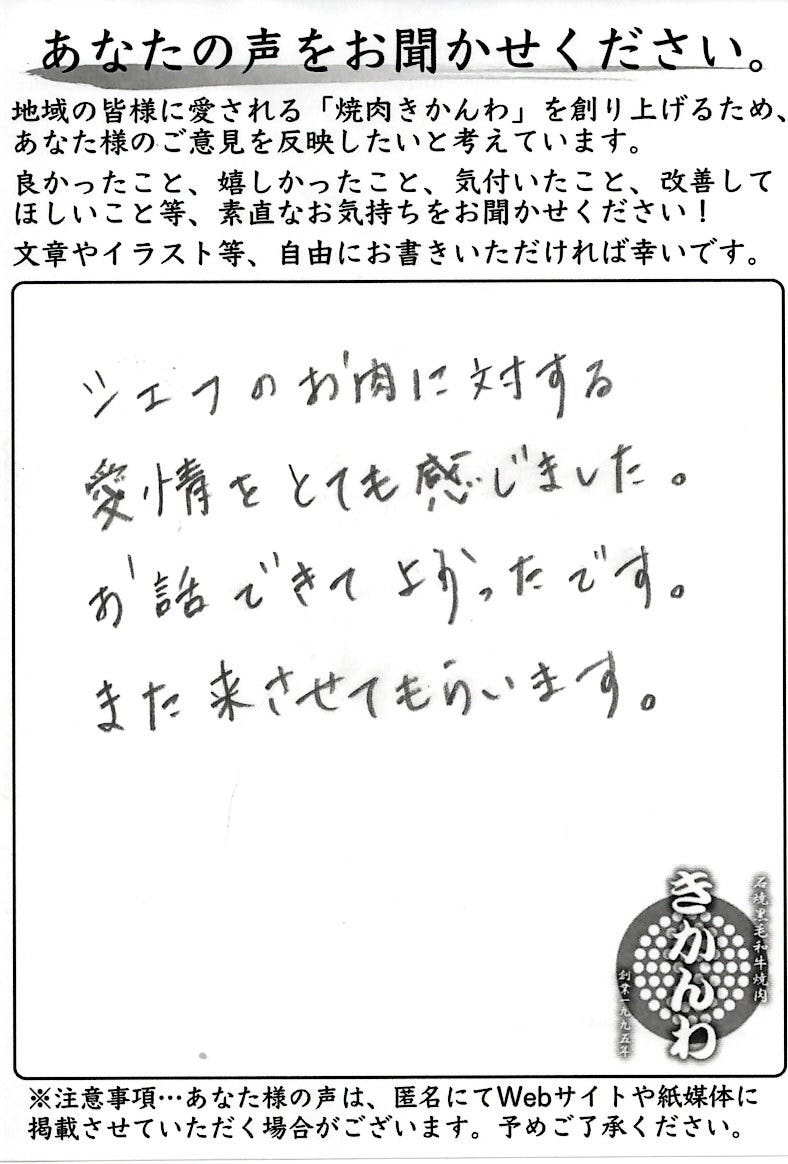 あなたの声をお聞かせください。
地域の皆様に愛される「焼肉きかんわ」を創り上げるため、
あなた様のご意見を反映したいと考えています。
良かったこと、嬉しかったこと、気付いたこと、改善して
ほしいこと等、素直なお気持ちをお聞かせください！
文章やイラスト等、自由にお書きいただければ幸いです。
シェフのお肉に対する
愛情をとても感じました。
お話できてよかったです。
また来させてもらいます。
石焼黒毛和牛焼肉
きかんわ
創業一九九五年
※注意事項…あなた様の声は、匿名にてWebサイトや紙媒体に
掲載させていただく場合がございます。予めご了承ください。